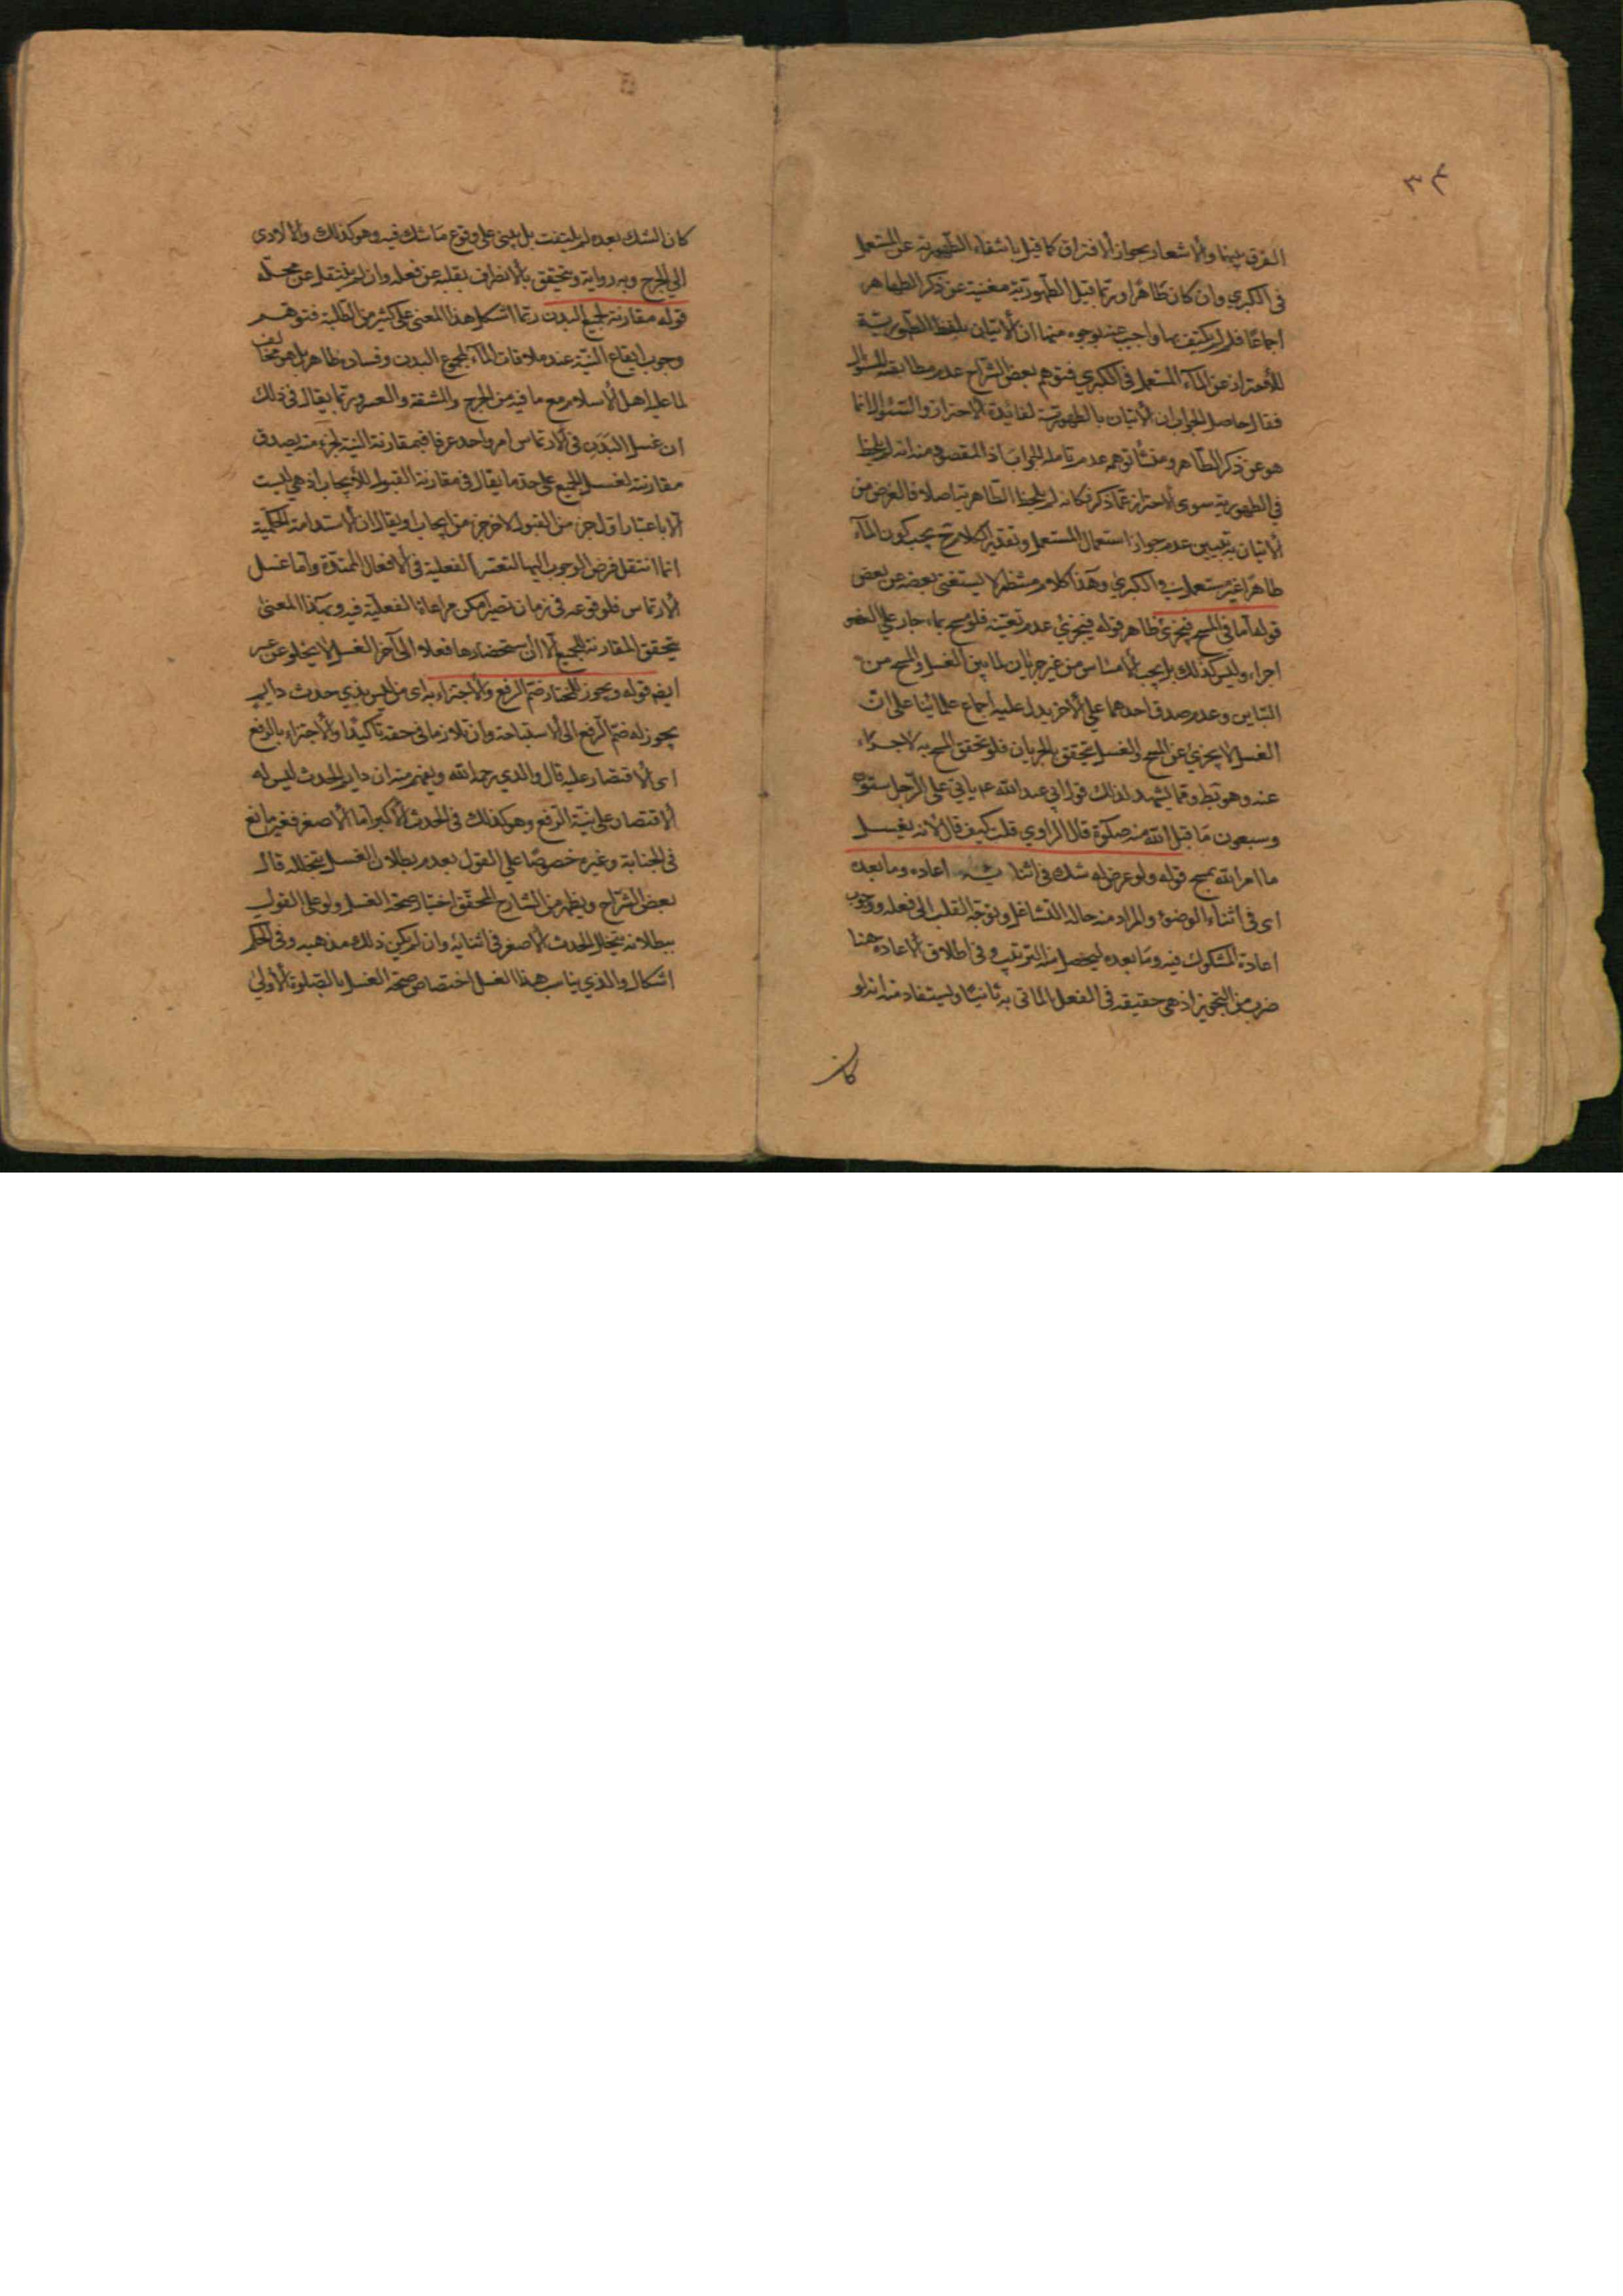 ٣٤
الفرق بينهما والاشعار بجواز الافتراق كما قيل بانتفاء الطهورية عن المستعمل
فى الكبرى وان كان طاهرا وربما قيل الطهورية مغنية عن ذكر الطاهر
اجماعًا فلم لم يكتف بها واجيب عنه بوجوه منها ان الاتيان بلفظ الطهورية
للاحتراز عن الماء المستعمل فى الكبرى فتوهم بعض الشراح عدم مطابقته للسؤال
فقال حاصل الجواب ان الاتيان بالطهورية لفائدة الاحتراز والسئوال انما
هو عن ذكر الطاهر ومنشأ توهمه عدم تامله الجواب اذ المقصود منه انه لم يلحظ
فى الطهورية سوى الاحتراز عما ذكر فكانه لم يلحظ الطاهرية اصلا فالغرض من
الاتيان به تبيين عدم جواز استعمال المستعمل وتقدير الكلام ح يجب كون الماء
طاهرًا غير مستعمل فى الكبرى وهذا كلام منتظم لا يستغنى بعضه عن بعض
قوله اما فى المسح فيجزئ ظاهر قوله فيجزئ عدم تعينه فلو مسح بماء جار على العضو
اجزاء وليس كذلك بل يجب الامساس من غير جريان لما بين الغسل والمسح من
التباين وعدم صدق احدهما على الاخر يدل عليه اجماع علمائنا على ان
الغسل لا يجزئ عن المسح والغسل يتحقق بالجريان فلو تحقق المسح به لاجزاء
عنه وهو بط ومما يشهد لذلك قول ابى عبد الله ع م ياتى على الرجل ستون
وسبعون ما قبل الله منه صلوة قال الراوي قلت كيف قال لانه يغسل
ما امر الله بمسح قوله ولو عرض له شك فى اثنائه اعاده وما بعده
اى فى اثناء الوضوء والمراد منه حالة التشاغل وتوجه القلب الى فعله ووجوب
اعادة المشكوك فيه وما بعده ليحصل منه الترتيب وفى اطلاق الاعادة هنا
ضرب من التجويز اذ هى حقيقة فى الفعل الماتى به ثانيًا ويستفاد منه انه لو
كان
كان الشك بعده لم يلتفت بل يبنى على وقوع ما شك فيه وهو كذلك والا لادى
الى الحرج وبه رواية ويتحقق بالانصراف بقلبه عن فعله وان لم ينتقل عن محله
قوله مقارنة لجميع البدن ربما اشكل هذا المعنى على كثير من الطلبة فتوهم
وجوب ايقاع النية عند ملاقات الماء لجميع البدن وفساده ظاهر بل هو مخالف
لما عليه اهل الاسلام مع ما فيه من الحرج والمشقة والعسر وربما يقال فى ذلك
ان غسل البدن فى الارتماس امر واحد عرفا فبمقارنة النية لجزء منه يصدق
مقارنته لغسل الجميع على حد ما يقال فى مقارنة القبول للايجاب اذ هى ليست
الا باعتبار اول جزء من القبول لاخر جزء من ايجاب او يقال ان الاستدامة الحكمية
انما انتقل فرض الوجوب اليها لتعسر الفعلية فى الافعال الممتدة واما غسل
الارتماس فلوقوعه فى زمان قصير امكن مراعاة الفعلية فيه وبهذا المعنى
يتحقق المقارنة للجميع الا ان استحضارها فعلا الى آخر الغسل لا يخلو عن عسر
ايضا قوله ويجوز للمختار ضم الرفع والاجتزاء به اى من ليس بذى حدث دايم
يجوز له ضم الرفع الى الاستباحة وان تلازما فى حقه تاكيدًا والاجتزاء بالرفع
اى الاقتصار عليه قال والدي رحمه الله ويفهم منه ان دايم الحدث ليس له
الاقتصار على نية الرفع وهو كذلك فى الحدث الاكبر اما الاصغر فغير مانع
فى الجنابة وغيره خصوصًا على القول بعدم بطلان الغسل بتخلله قال
بعض الشراح ويظهر من الشارح المحقق اختيار صحة الغسل ولو على القول
ببطلانه بتخلل الحدث الاصغر فى اثنائه وان لم يكن ذلك مذهبه وفى الحكم
اشكال والذي يناسب هذا الغسل اختصاص صحة الغسل بالصلوة الاولى